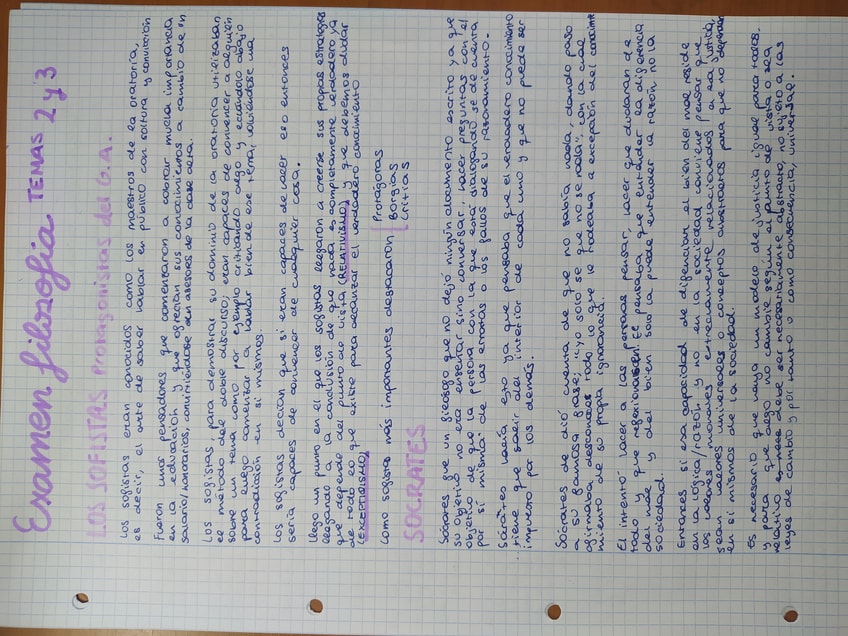 Examen filosofia TEMAS 2 y 3
LOS SOFISTAS Protagonistas del G.A.
Los sofistas eran conocidos como los maestros de la oratoria,
es decir, el arte de saber hablar en público con soltura y convicción
Fueron unos pensadores que comenzaron a cobrar mucha importancia
en la educación y que ofrecían sus conocimientos a cambio de un
salario/honorarios, convirtiéndose en asesores de la clase alta.
Los sofistas, para demostrar su dominio de la oratoria utilizaban
el método del doble discurso, eran capaces de convencer a alguien
sobre un tema como por ejemplo criticando algo y echándolo abajo
para luego comenzar a hablar bien de ese tema, viviéndose una
contradicción en si mismos.
Los sofistas decían que si eran capaces de hacer eso entonces
sería capaces de convencer de cualquier cosa.
Llego un punto en el que los sofistas llegaron a creerse sus propias estrategias
llegando a la conclusión de que nada es completamente verdadero ya
que depende del punto de vista (RELATIVISMO) y que debemos dudar
de todo lo que existe para alcanzar el verdadero conocimiento
(ESCEPTICISMO)
Como sofistas más importantes destacaron { Protágoras
Gorgias
Critias
SOCRATES
Sócrates fue un filósofo que no dejó ningún documento escrito ya que
su objetivo no era enseñar sino conversar, hacer preguntas con el
objetivo de que la persona con la que está dialogando se dé cuenta
por si misma de las erratas o los fallos de su razonamiento.
Sócrates hacía esto ya que pensaba que el verdadero conocimiento
tiene que salir del interior de cada uno y que no puede ser
impuesto por los demás.
Sócrates se dió cuenta de que no sabía nada, dando paso
a su famosa frase; «yo solo se que no se nada», con la cual
afirmaba desconocer todo lo que le rodeaba a excepción del
miento de su propia ignorancia.
El intentó hacer a las personas pensar, hacer que dudaran de
todo y que reflexionasen. El pensaba que entender la diferencia
del mal y del bien solo la puede entender la razón no la
sociedad.
Entonces si esa capacidad de diferenciar el bien del mal reside
en la lógica/razón y no en la sociedad conviene pensar que
los valores morales, estrechamente relacionados a la justicia,
sean valores universales o conceptos abstractos para que no dependan
en si mismos de la sociedad.
Es necesario que haya un modelo de justicia igual para todos.
y para que algo no cambie según el punto de vista o sea
relativo ese debe ser necesariamente abstracto, no sujeto a las
leyes de cambio y por tanto o como consecuencia, universal.